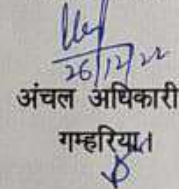 26/12/22
अंचल अधिकारी
गम्हरिया।